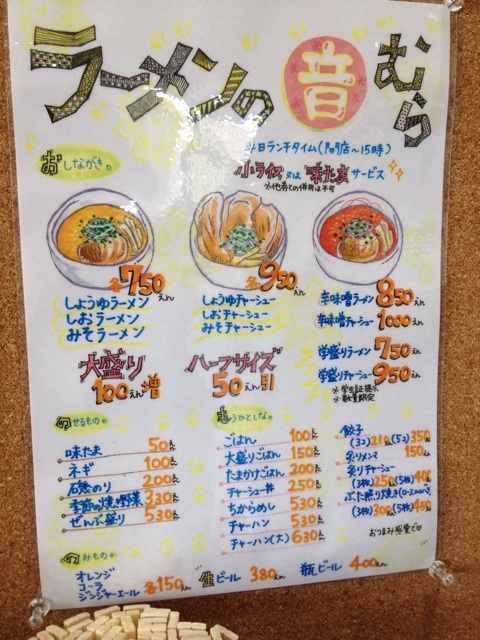 ラーメンの音むら
日ランチタイム(開店〜15時)
小ライス又は味たまサービス
※他券との併用は不可
おしながき。
各750えん
しょうゆラーメン
しおラーメン
みそラーメン
各950えん
しょうゆチャーシュー
しおチャーシュー
みそチャーシュー
辛味噌ラーメン 850えん
辛味噌チャーシュー 1000えん
学盛りラーメン 750えん
学盛りチャーシュー 950えん
※学生証提示
※数量限定
大盛り
100えん増
ハーフサイズ
50えん引
のせるもの。
味たま 50えん
ネギ 100えん
石松のり 200えん
季節の焼き野菜 330えん
ぜんぶ盛り 530えん
もうひとしな。
ごはん 100えん
大盛りごはん 150えん
たまかけごはん 200えん
チャーシュー丼 250えん
ちからめし 530えん
チャーハン 530えん
チャーハン(大) 630えん
餃子
(3コ)210 (5コ)350
炙りメンマ 150えん
炙りチャーシュー
(3枚)250 (5枚)400
ぶた照り焼き
(3枚)300 (5枚)450
おつまみ感覚で♡
のみもの。
オレンジ
コーラ
ジンジャーエール
各150えん
生ビール 380えん
瓶ビール 400えん